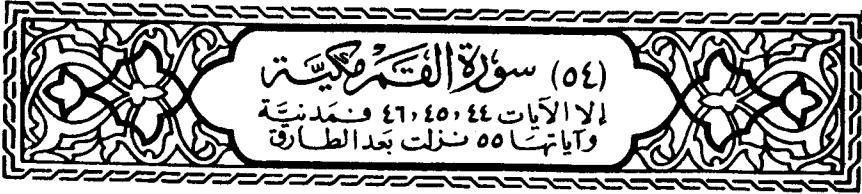 (٥٤) سورة القمر مكيّة
إلا الآيات ٤٤ ، ٤٥ ، ٤٦ فمدنيّة
وآياتها ٥٥ نزلت بعد الطارق